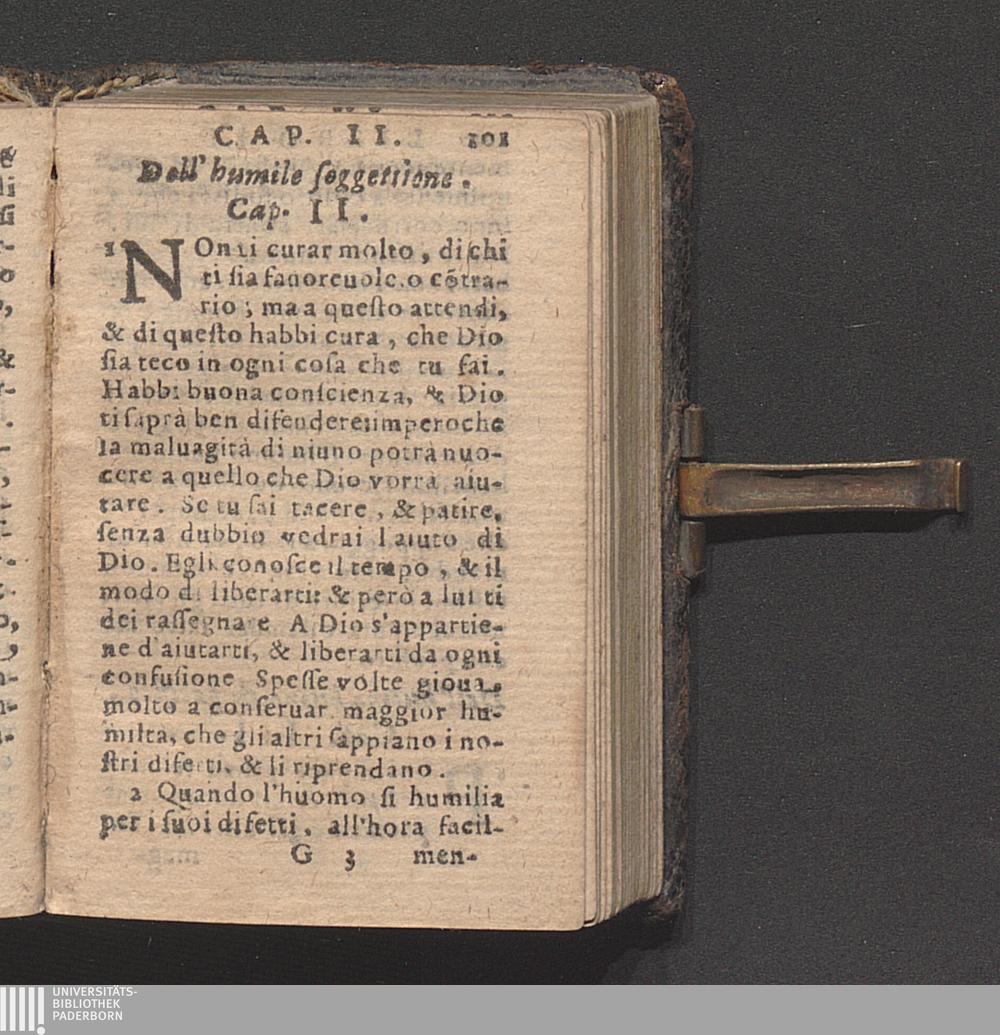 CAP. II. 101
Dell' humile ſoggettione.
Cap. II.
1 NOn ti curar molto, di chi
ti ſia fauoreuole, o cõtra-
rio; ma a queſto attendi,
& di queſto habbi cura, che Dio
ſia teco in ogni coſa che tu fai.
Habbi buona conſcienza, & Dio
ti ſaprà ben difendere: imperoche
la maluagità di niuno potrà nuo-
cere a quello che Dio vorrà aiu-
tare. Se tu ſai tacere, & patire,
ſenza dubbio vedrai l'aiuto di
Dio. Egli conoſce il tempo, & il
modo di liberarti: & però a lui ti
dei raſſegnare. A Dio s'appartie-
ne d'aiutarti, & liberarti da ogni
confuſione. Speſſe volte gioua
molto a conſeruar maggior hu-
milta, che gli altri ſappiano i no-
ſtri difetti, & li riprendano.
2 Quando l'huomo ſi humilia
per i ſuoi difetti, all'hora facil-
G 3 men-
UNIVERSITÄTS-
BIBLIOTHEK
PADERBORN